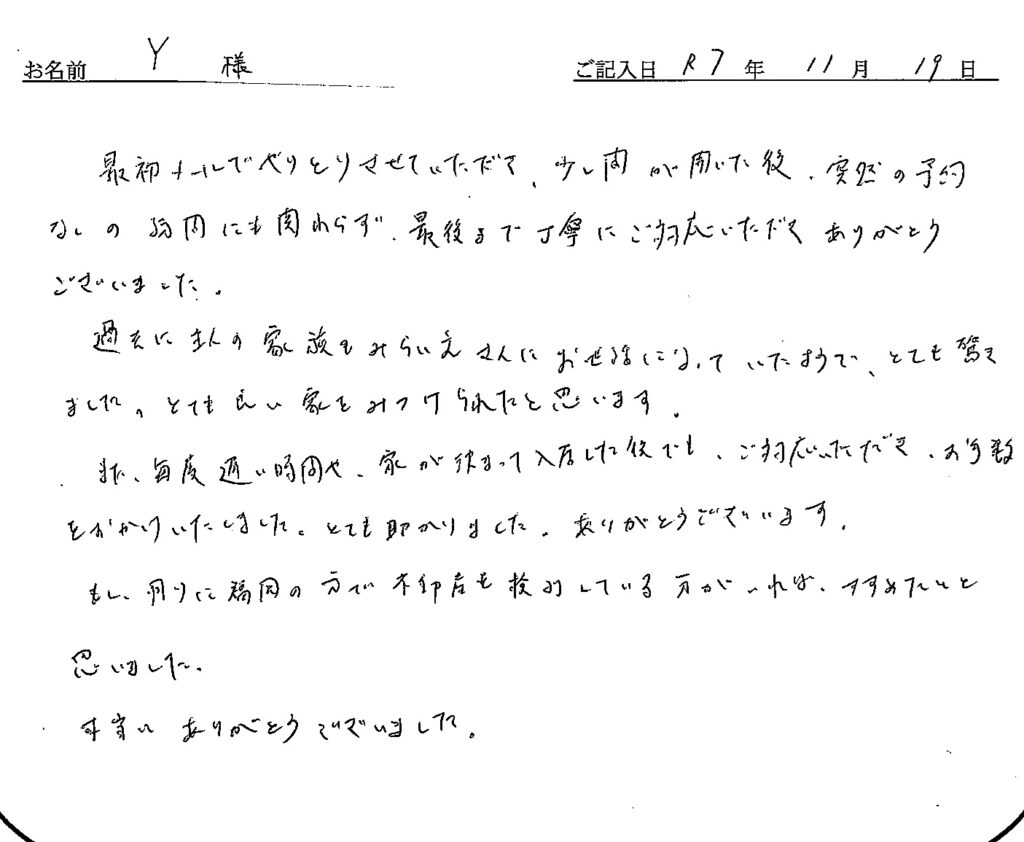 お名前 Y 様 ご記入日 R7年 11月 19日
最初メールでやりとりさせていただき、少し間が開いた後、突然の予約
なしの訪問にも関わらず、最後まで丁寧にご対応いただき ありがとう
ございました。
過去に主人の家族もみらいえさんにお世話になっていたようで、とても驚き
ました。とても良い家をみつけられたと思います。
また、毎度遅い時間や、家が決まって入居した後でも、ご対応いただき、お手数
をおかけいたしました。とても助かりました。ありがとうございます。
もし、周りに福岡の方で不動産を検討している方がいれば、すすめたいと
思いました。
本当に ありがとうございました。